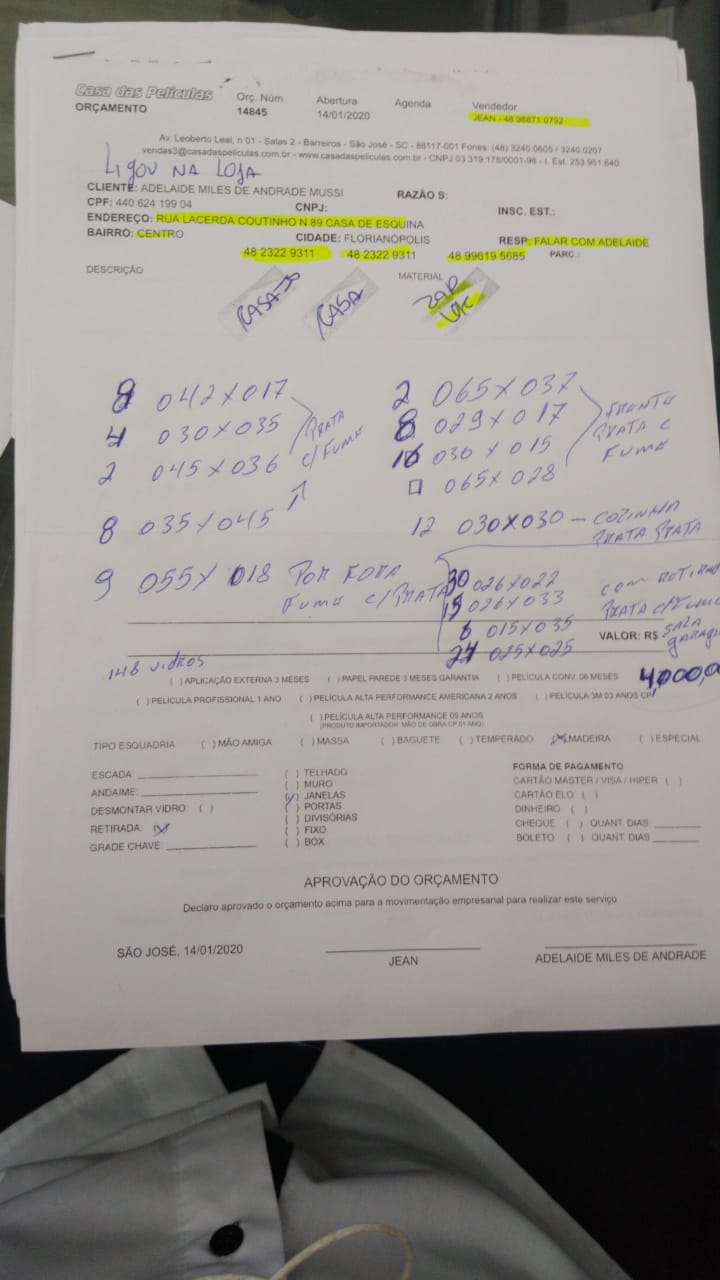 Casa das Películas
ORÇAMENTO
Orç. Núm
14845
Abertura
14/01/2020
Agenda
Vendedor
JEAN - 48 98871 0792
Av. Leoberto Leal, n 01 - Salas 2 - Barreiros - São José - SC - 88117-001 Fones: (48) 3240.0605 / 3240.0207
vendas3@casadaspeliculas.com.br - www.casadaspeliculas.com.br - CNPJ 03.319.178/0001-96 - I. Est. 253.951.640
LIGOU NA LOJA
CLIENTE: ADELAIDE MILES DE ANDRADE MUSSI
RAZÃO S:
CPF: 440 624 199 04
CNPJ:
INSC. EST.:
ENDEREÇO: RUA LACERDA COUTINHO N 89 CASA DE ESQUINA
BAIRRO: CENTRO
CIDADE: FLORIANÓPOLIS
RESP: FALAR COM ADELAIDE
48 2322 9311
48 2322 9311
48 99619 5685
PARC.:
DESCRIÇÃO
MATERIAL
CASA
ZAP
8 042X017
4 030X035
2 045X036
PRATA
C/FUMÊ
8 035X045
9 055X018 POR FORA
FUMÊ C/PRATA
2 065X037
8 029X017
16 036X015
065X028
FRENTE
PRATA C
FUMÊ
12 030X030 - COZINHA
PRATA PRATA
30 026X022
026X033
6 015X035
24 025X025
COM RETIRADA
SALA
148 vidros
VALOR: R$
4,000,0
( ) APLICAÇÃO EXTERNA 3 MESES ( ) PAPEL PAREDE 3 MESES GARANTIA ( ) PELÍCULA CONV. 06 MESES
( ) PELÍCULA PROFISSIONAL 1 ANO ( ) PELÍCULA ALTA PERFORMANCE AMERICANA 2 ANOS ( ) PELÍCULA 3M 03 ANOS CP
( ) PELÍCULA ALTA PERFORMANCE 05 ANOS
(PRODUTO IMPORTADOR, MÃO DE OBRA CP 01 ANO)
TIPO ESQUADRIA ( ) MÃO AMIGA ( ) MASSA ( ) BAGUETE ( ) TEMPERADO (X) MADEIRA ( ) ESPECIAL
ESCADA:
ANDAIME:
DESMONTAR VIDRO: ( )
RETIRADA: (X)
GRADE CHAVE:
( ) TELHADO
( ) MURO
(X) JANELAS
( ) PORTAS
( ) DIVISÓRIAS
( ) FIXO
( ) BOX
FORMA DE PAGAMENTO
CARTÃO MASTER / VISA / HIPER ( )
CARTÃO ELO ( )
DINHEIRO ( )
CHEQUE ( ) QUANT. DIAS
BOLETO ( ) QUANT. DIAS
APROVAÇÃO DO ORÇAMENTO
Declaro aprovado o orçamento acima para a movimentação empresarial para realizar este serviço
SÃO JOSÉ, 14/01/2020
JEAN
ADELAIDE MILES DE ANDRADE